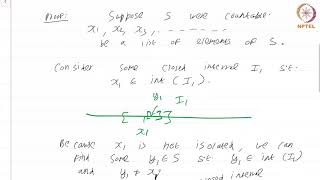 NPTEL
Proof: Suppose S were countable.
x₁, x₂, x₃, .......
be a list of elements of S.
Consider some closed interval I₁ s.t.
x₁ ∈ int (I₁).
y₁ I₁
x₁
Because x₁ is not isolated, we can
find some y₁ ∈ S s.t. y₁ ∈ int (I₁)
and y₁ ≠ x₁
closed interval